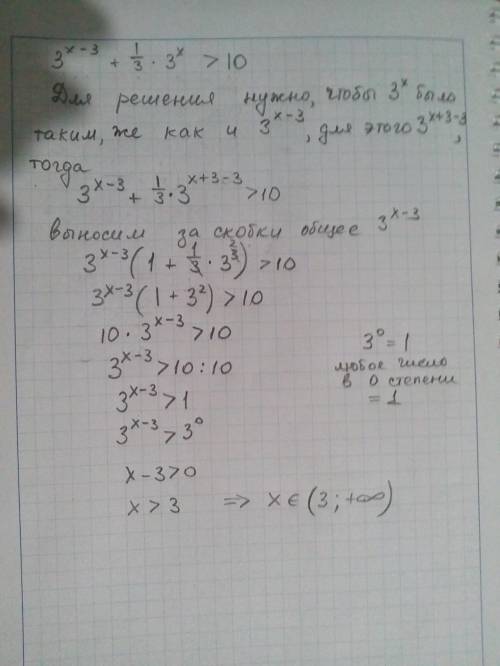 3^{x-3} + \frac{1}{3} · 3^x > 10
Для решения нужно, чтобы 3^x было
таким, же как и 3^{x-3}, для этого 3^{x+3-3},
тогда
3^{x-3} + \frac{1}{3} · 3^{x+3-3} > 10
выносим за скобки общее 3^{x-3}
3^{x-3}(1 + \frac{1}{3} · 3^{3^2}) > 10
3^{x-3}(1 + 3^2) > 10
10 · 3^{x-3} > 10
3^{x-3} > 10 : 10
3^{x-3} > 1
3^{x-3} > 3^0
3^0 = 1
любое число
в 0 степени
= 1
x - 3 > 0
x > 3 ⇒ x ∈ (3; +∞)